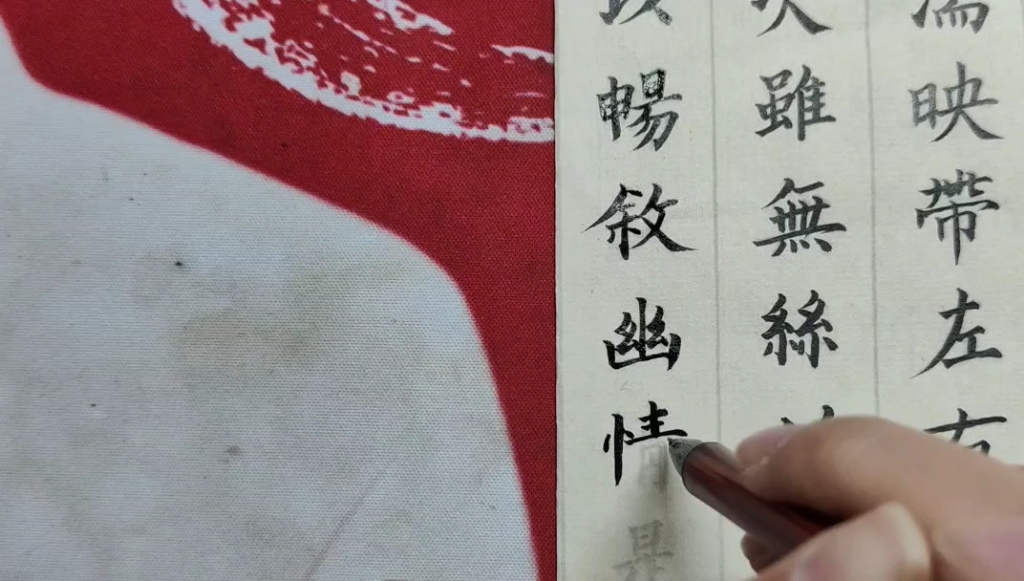 湍映帶左右
次雖無絲
以暢敘幽情是